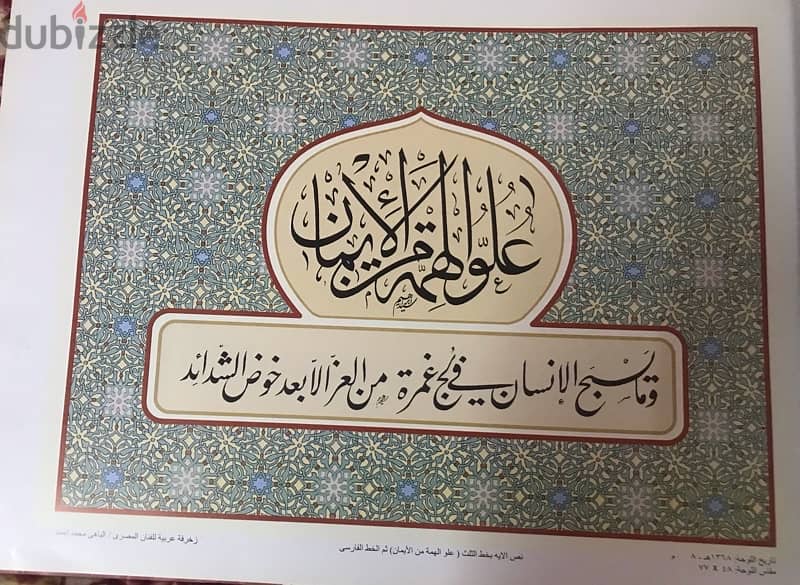 dubizzle
علو الهمة من الإيمان
وما يسبح الإنسان في لج غمرة من العز الا بعد خوض الشدائد
زخرفة عربية للفنان المصرى / الباهى محمد
نص الايه بخط الثلث ( علو الهمة من الأيمان) ثم الخط الفارسى
تاريخ اللوحة: ١٣٦٨هـ
مقاس اللوحة: ٤٨ X ٧٧